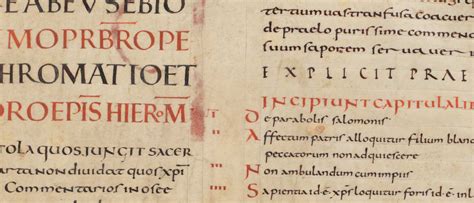 E A BE V SEBIO
MOPRBROPE
HROMATIOET
ROEPIS HIERM
TOLA QUOS IUNGIT SACER
ARTA NON DIVIDAT QUOS XPI
Commentarios in osee
tertium vas transfusa coacuer
de praelo purissime commen
suum saporem servaver
EXPLICIT PRAE
INCIPIUNT CAPITULA LI
De parabolis salomonis
Affectum patris alloquitur filium blan
peccatorum non adquiesere
Non ambulandum cum impiis
Sapientia id e xps loquitur foris id e